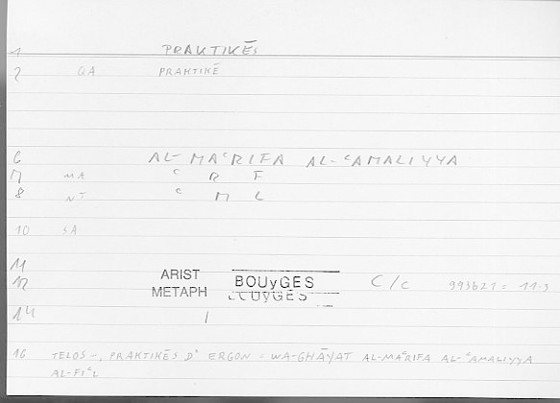 1 PRAKTIKĒS
2 QA PRAKTIKĒ
6 AL-MAᶜRIFA AL-ᶜAMALIYYA
7 MA ᶜ R F
8 NT ᶜ M L
10 SA
11
12 ARIST METAPH BOUyGES C/c 993b21 = 11.3
BOUyGES
14 1
16 TELOS –, PRAKTIKĒS D' ERGON = WA-GHĀYAT AL-MAᶜRIFA AL-ᶜAMALIYYA
AL-FIᶜL